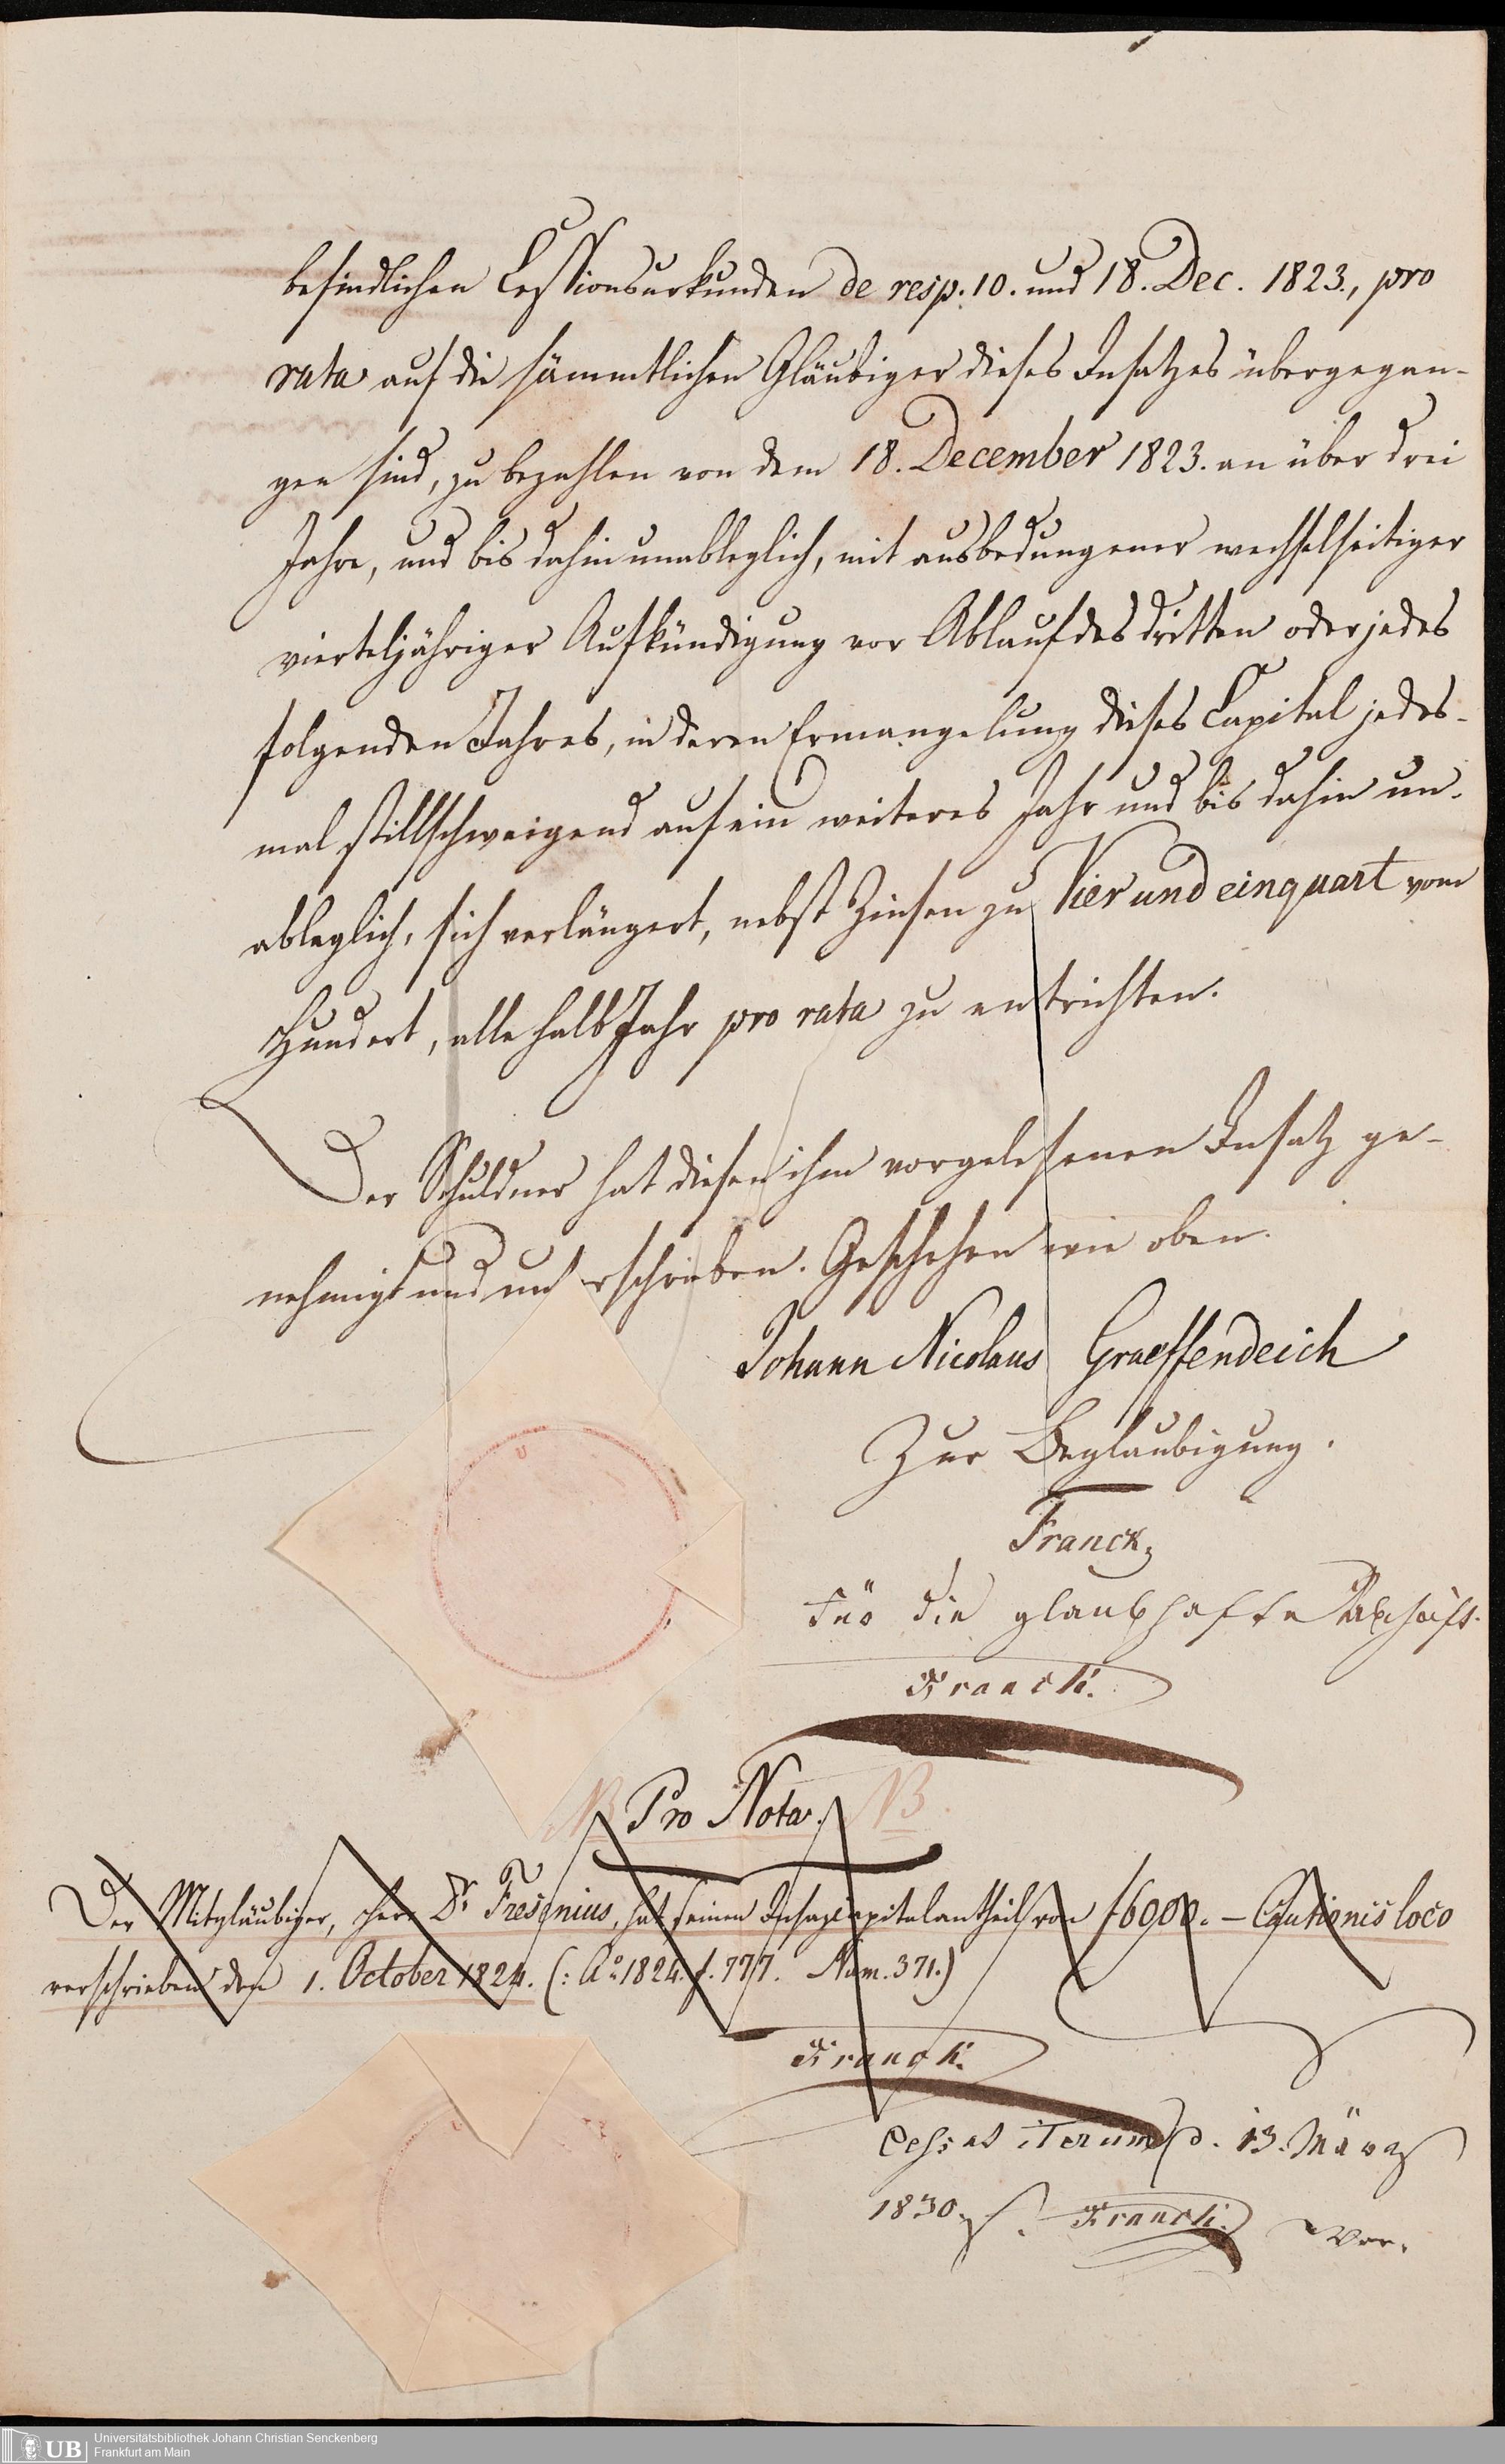 befindlichen Cessionsurkunden de resp. 10. und 18. Dec. 1823., pro
rata auf die sämmtlichen Gläubiger dieses Insatzes übergegan-
gen sind, zu bezahlen von dem 18. December 1823. an über drei
Jahre, und bis dahin unableglich, mit ausbedungener wechselseitiger
vierteljähriger Aufkündigung vor Ablauf des dritten oder jedes
folgenden Jahres, in deren Ermangelung dieses Capital jedes-
mal stillschweigend auf ein weiteres Jahr und bis dahin un-
ableglich, sich verlängert, nebst Zinsen zu Vier und einquart vom
Hundert, alle halb Jahr pro rata zu entrichten.
Der Schuldner hat diesen ihm vorgelesenen Insatz ge-
nehmigt und unterschrieben. Geschehen wie oben.
Johann Nicolaus Graeffendeich
Zur Beglaubigung.
Franck,
Für die glaubhafte Abschrift.
Franck.
NB Pro Nota. NB.
Der Mitgläubiger, Herr Dr. Fresenius, hat seinen Insazcapitalantheil von f6000. – Cautionis loco
verschrieben den 1. October 1824. (: Ao. 1824. f. 777. Num. 371.)
Franck.
Cessat iterum d. 13. März
1830. Franck.
Vor.
UB
Universitätsbibliothek Johann Christian Senckenberg
Frankfurt am Main